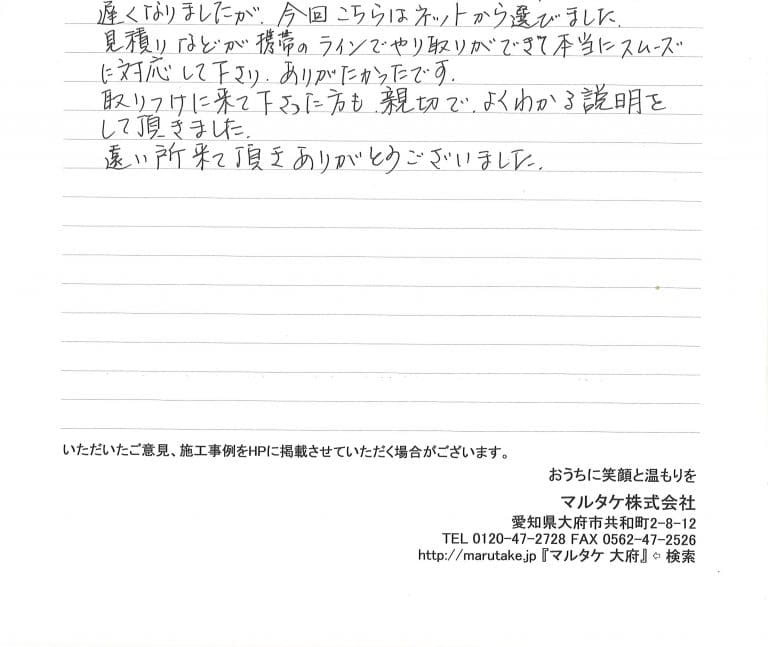 遅くなりましたが、今回こちらはネットから選びました。
見積りなどが携帯のラインでやり取りができて本当にスムーズ
に対応して下さり、ありがたかったです。
取りつけに来て下さった方も、親切で、よくわかる説明を
して頂きました。
遠い所来て頂きありがとうございました。
いただいたご意見、施工事例をHPに掲載させていただく場合がございます。
おうちに笑顔と温もりを
マルタケ株式会社
愛知県大府市共和町2-8-12
TEL 0120-47-2728 FAX 0562-47-2526
http://marutake.jp『マルタケ 大府』⇦ 検索